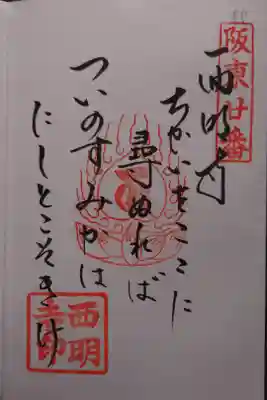 阪東廿番
西明寺
ちかいをここに
尋ぬれば
ついのすみかは
にしとこそきけ
西明
寺印